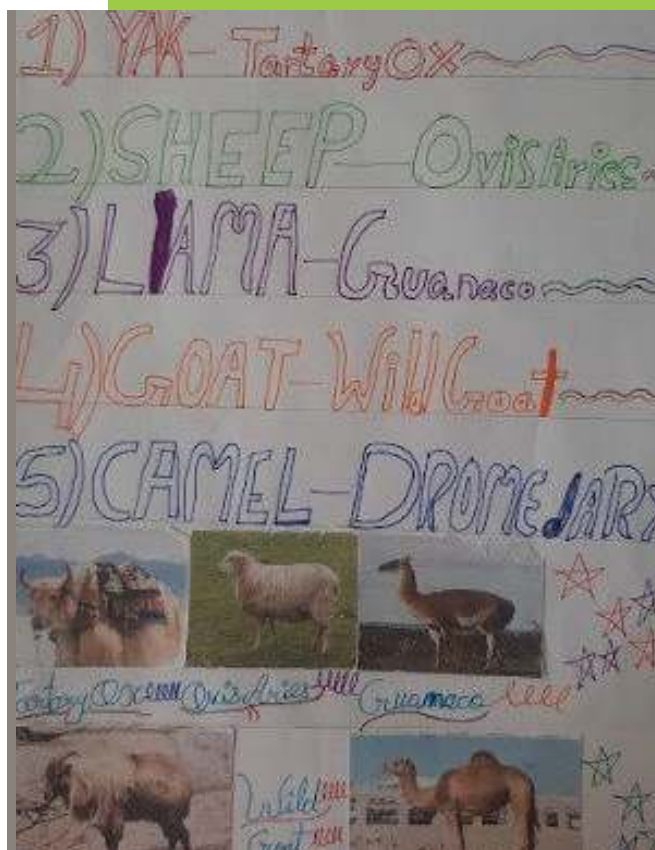 1) YAK - Tartary Ox
2) SHEEP - Ovis Aries
3) LlAMA - Guanaco
4) GOAT - Wild Goat
5) CAMEL - DROMEdARY
Tartary Ox Ovis Aries Guanaco
Wild
Goat